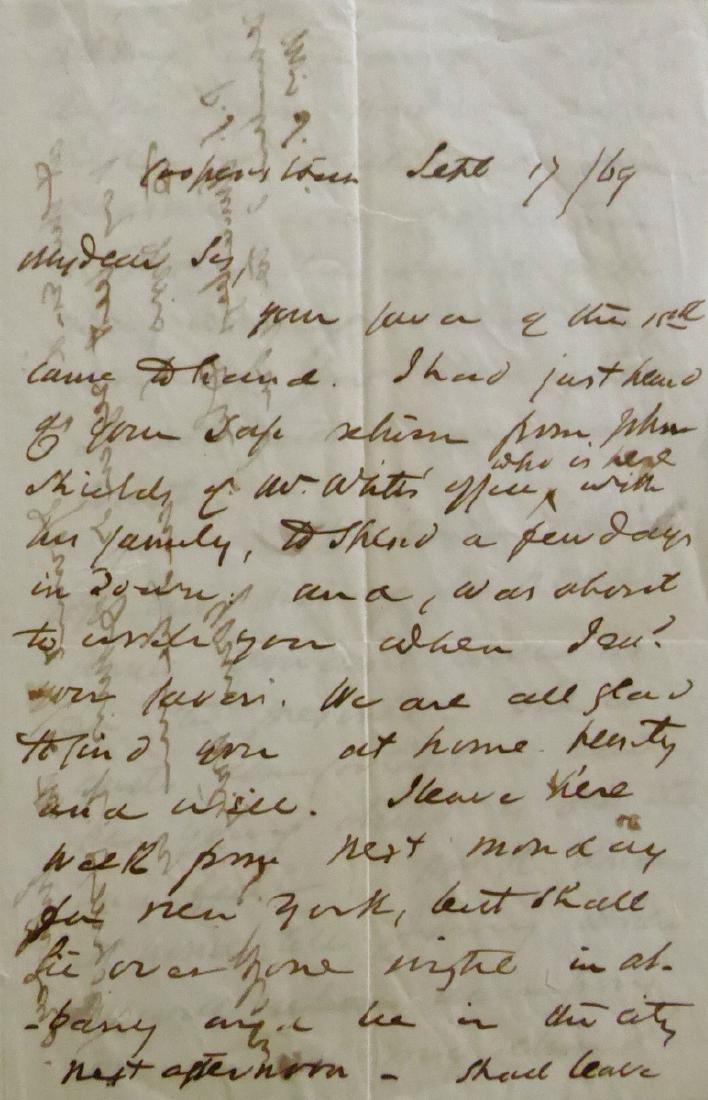 Cooperstown Sept 17/69
My dear Sir,
your favor of the 15th
came to hand. I had just heard
of your safe return from John
who is here
Shields of Mr. White's office, with
his family, to spend a few days
in Town. and, was about
to write you when I
your favor. We are all glad
to find you at home hearty
and well. I leave here
week from next monday
for New York, but shall
lie over one night in al-
-bany and be in the city
next afternoon - shall leave